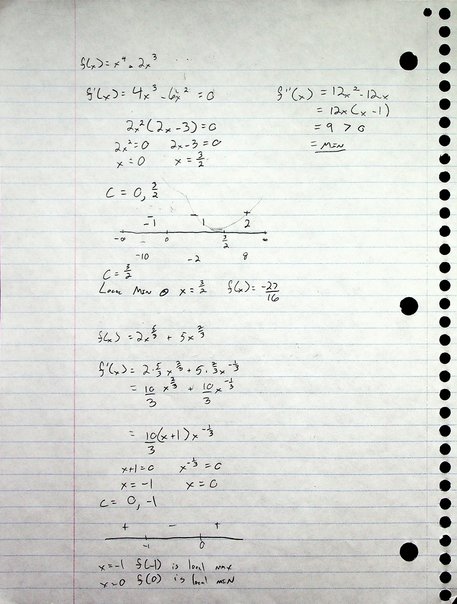 f(x) = x⁴ - 2x³
f'(x) = 4x³ - 6x² = 0
2x²(2x - 3) = 0
2x² = 0 2x - 3 = 0
x = 0 x = 3/2
f''(x) = 12x² - 12x
= 12x(x - 1)
= 9 > 0
= MIN
C = 0, 3/2
- - +
-1 1 2
-∞ 0 3/2 ∞
-10 -2 8
C = 3/2
Local MIN @ x = 3/2 f(x) = -27/16
f(x) = 2x^5/3 + 5x^2/3
f'(x) = 2·5/3 x^2/3 + 5·2/3 x^-1/3
= 10/3 x^2/3 + 10/3 x^-1/3
= 10/3 (x+1) x^-1/3
x+1 = 0 x^-1/3 = 0
x = -1 x = 0
C = 0, -1
+ - +
-1 0
x = -1 f(-1) is local max
x = 0 f(0) is local MIN